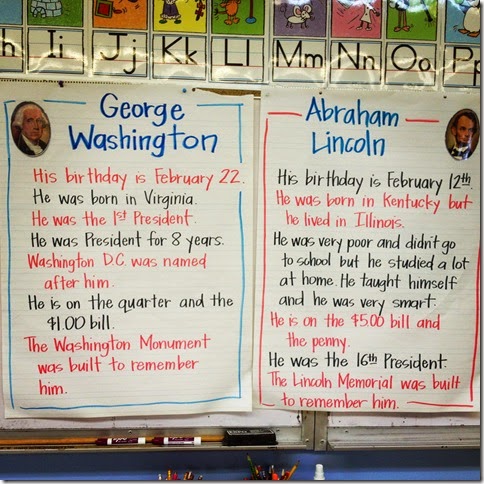 h Ii Jj Kk Ll Mm Nn Oo Pp
George
Washington
His birthday is February 22.
He was born in Virginia.
He was the 1st President.
He was President for 8 years.
Washington D.C. was named
after him.
He is on the quarter and the
$1.00 bill.
The Washington Monument
was built to remember
him.
Abraham
Lincoln
His birthday is February 12th.
He was born in Kentucky but
he lived in Illinois.
He was very poor and didn't go
to school but he studied a lot
at home. He taught himself
and he was very smart.
He is on the $5.00 bill and
the penny.
He was the 16th President.
The Lincoln Memorial was built
to remember him.